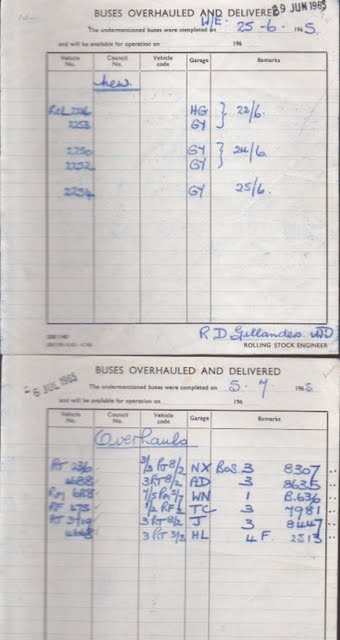 BUSES OVERHAULED AND DELIVERED 29 JUN 1965
W/E.
The undermentioned buses were completed on 25-6- 1965.
and will be available for operation on 196
Vehicle No. Council No. Vehicle code Garage Remarks
New
RML 2236 HG } 22/6.
2253 GY
2250 GY } 24/6
2252 GY
2254 GY 25/6.
R D Gillanders
ROLLING STOCK ENGINEER
BUSES OVERHAULED AND DELIVERED
6 JUL 1965
The undermentioned buses were completed on 5-7- 1965.
and will be available for operation on 196
Vehicle No. Council No. Vehicle code Garage Remarks
Overhauls
RT 236 3/3 RT8/2 NX BoS 3 8307
4688 3RT8/2 AD 3 8635
RM 688 WN 1 B.636
RF 475 TC 3 7981
RT 3RT8/2 J 3 8447
3 RT 3/2 HL 4 F. 2513